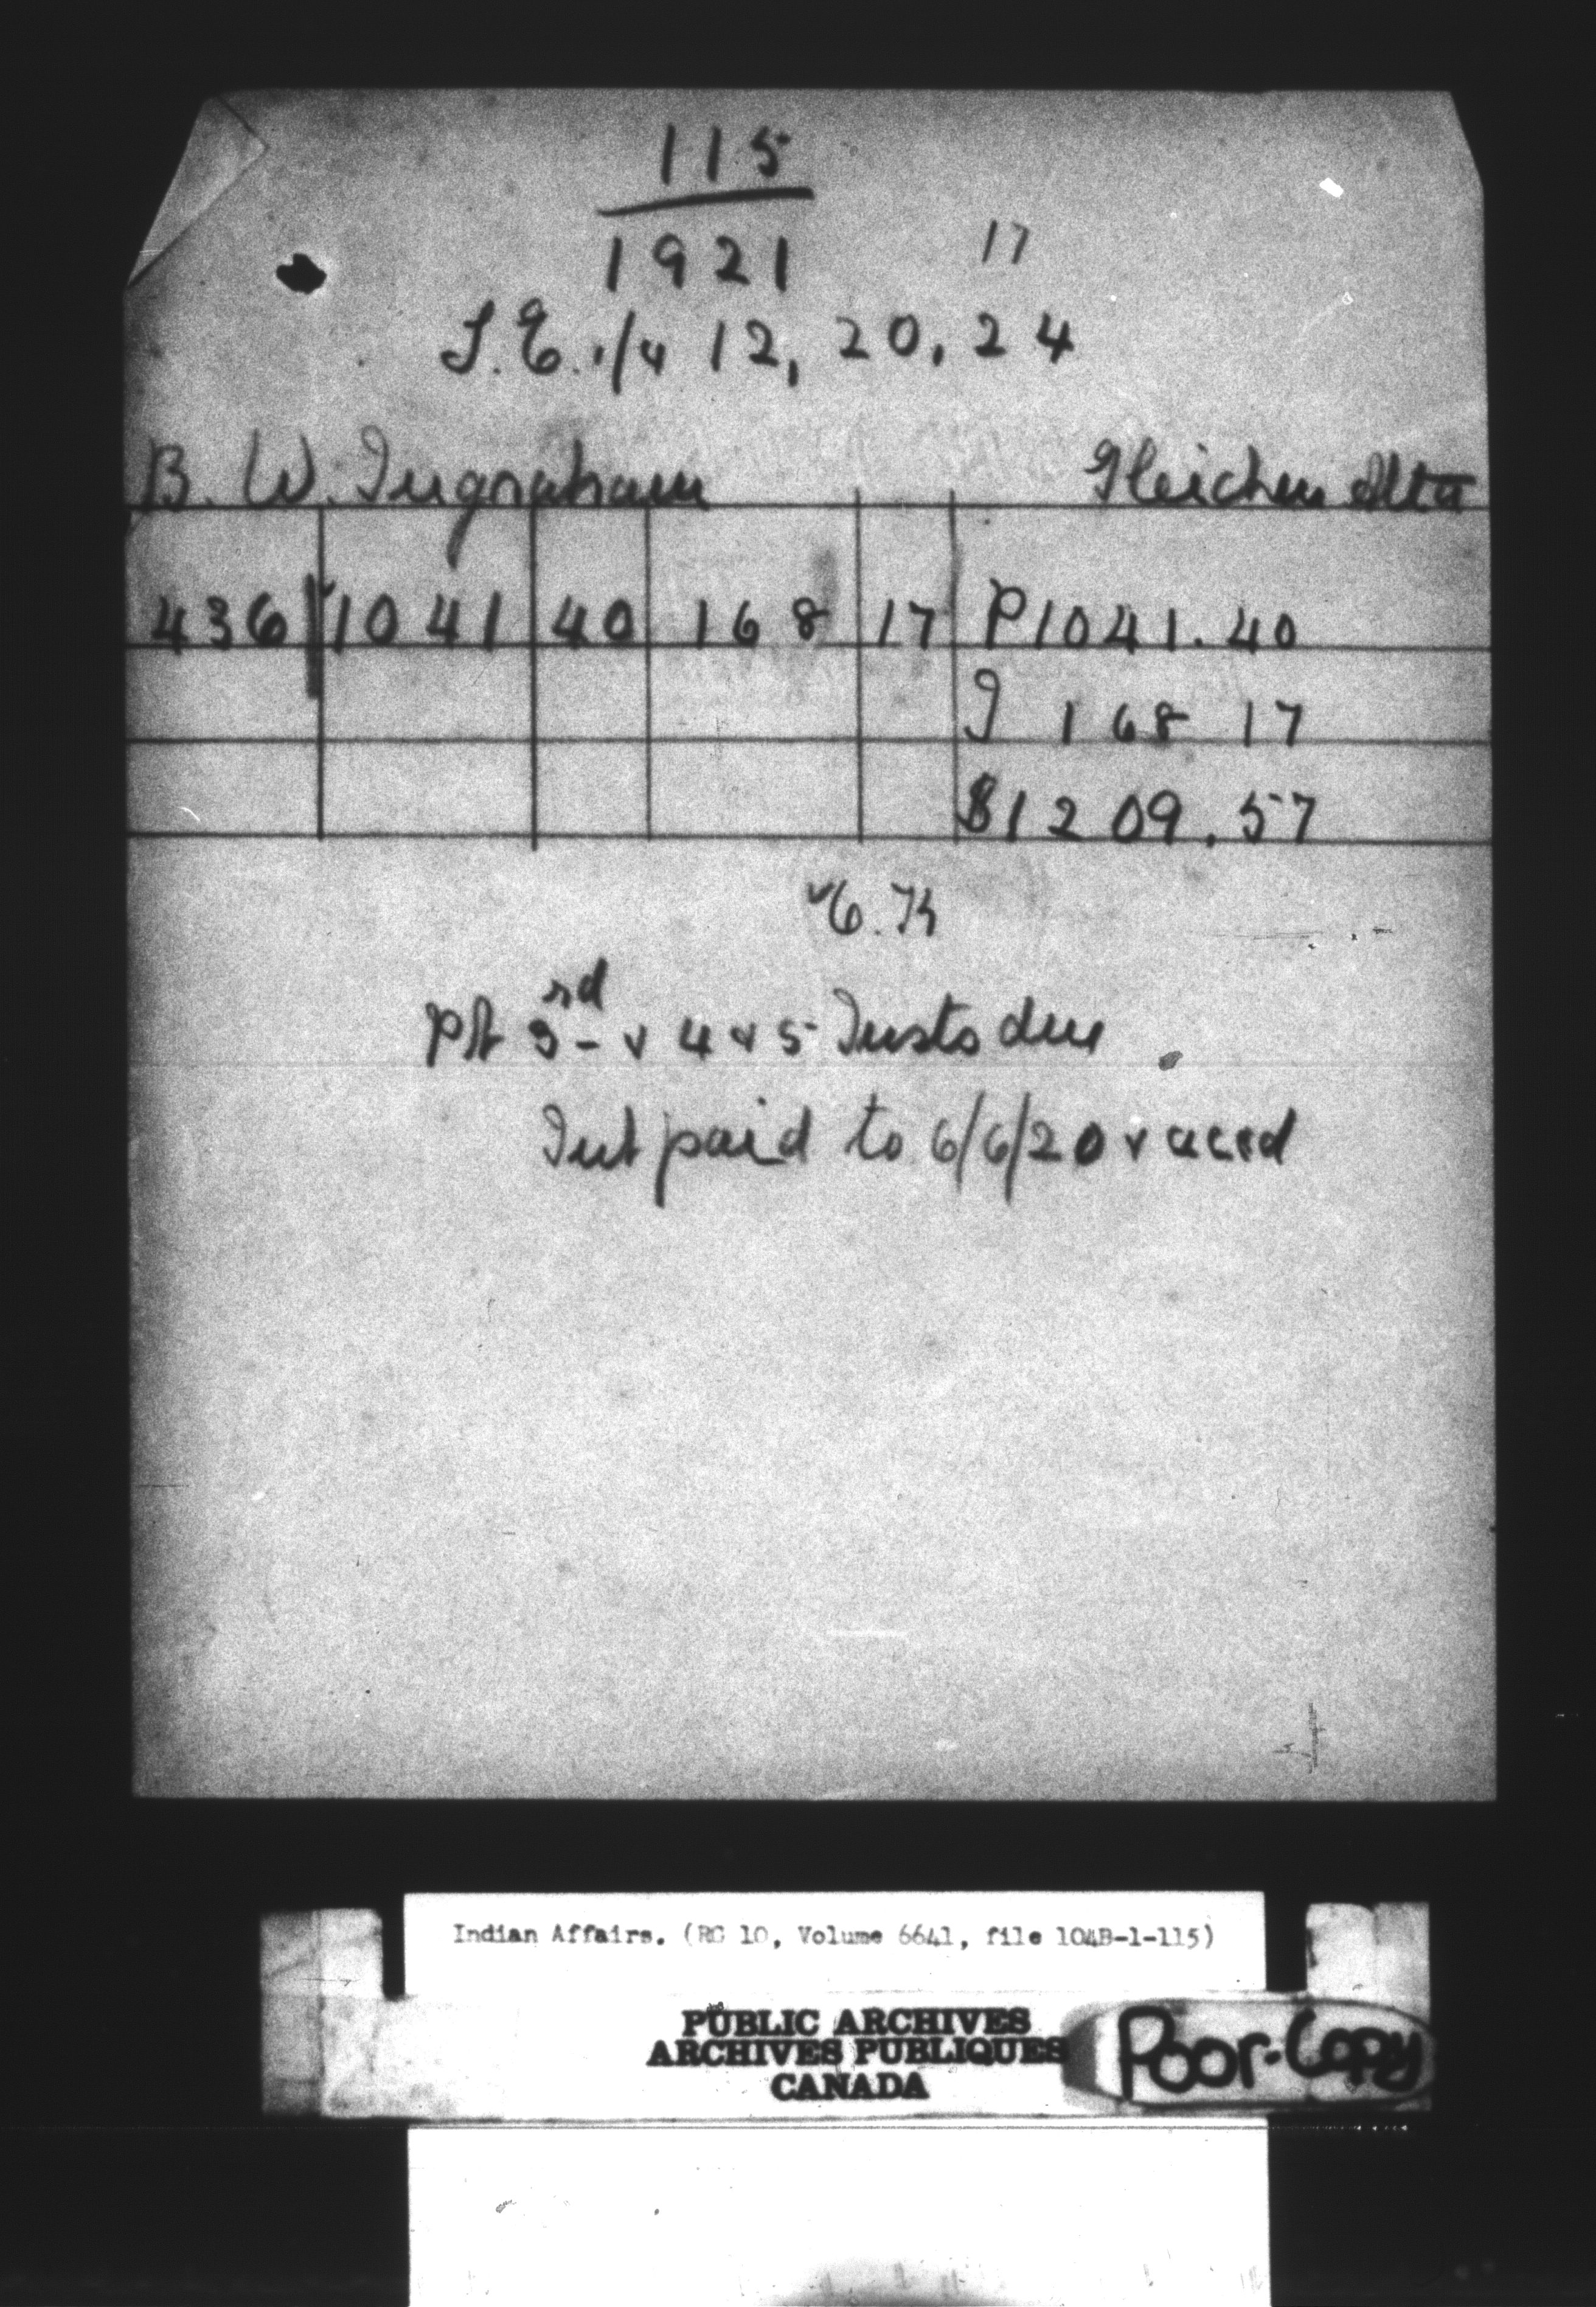 115
1921
17
S.E. 1/4 12, 20, 24
B. W. Ingraham Gleichen Alta
436 1041 40 168 17 P 1041.40
I 168 17
$1209.57
Pt 3rd - & 4 & 5 Insts due
Int paid to 6/6/20 & accd
Indian Affairs. (RG 10, Volume 6641, file 104B-1-115)
PUBLIC ARCHIVES
ARCHIVES PUBLIQUES
CANADA
Poor-Copy